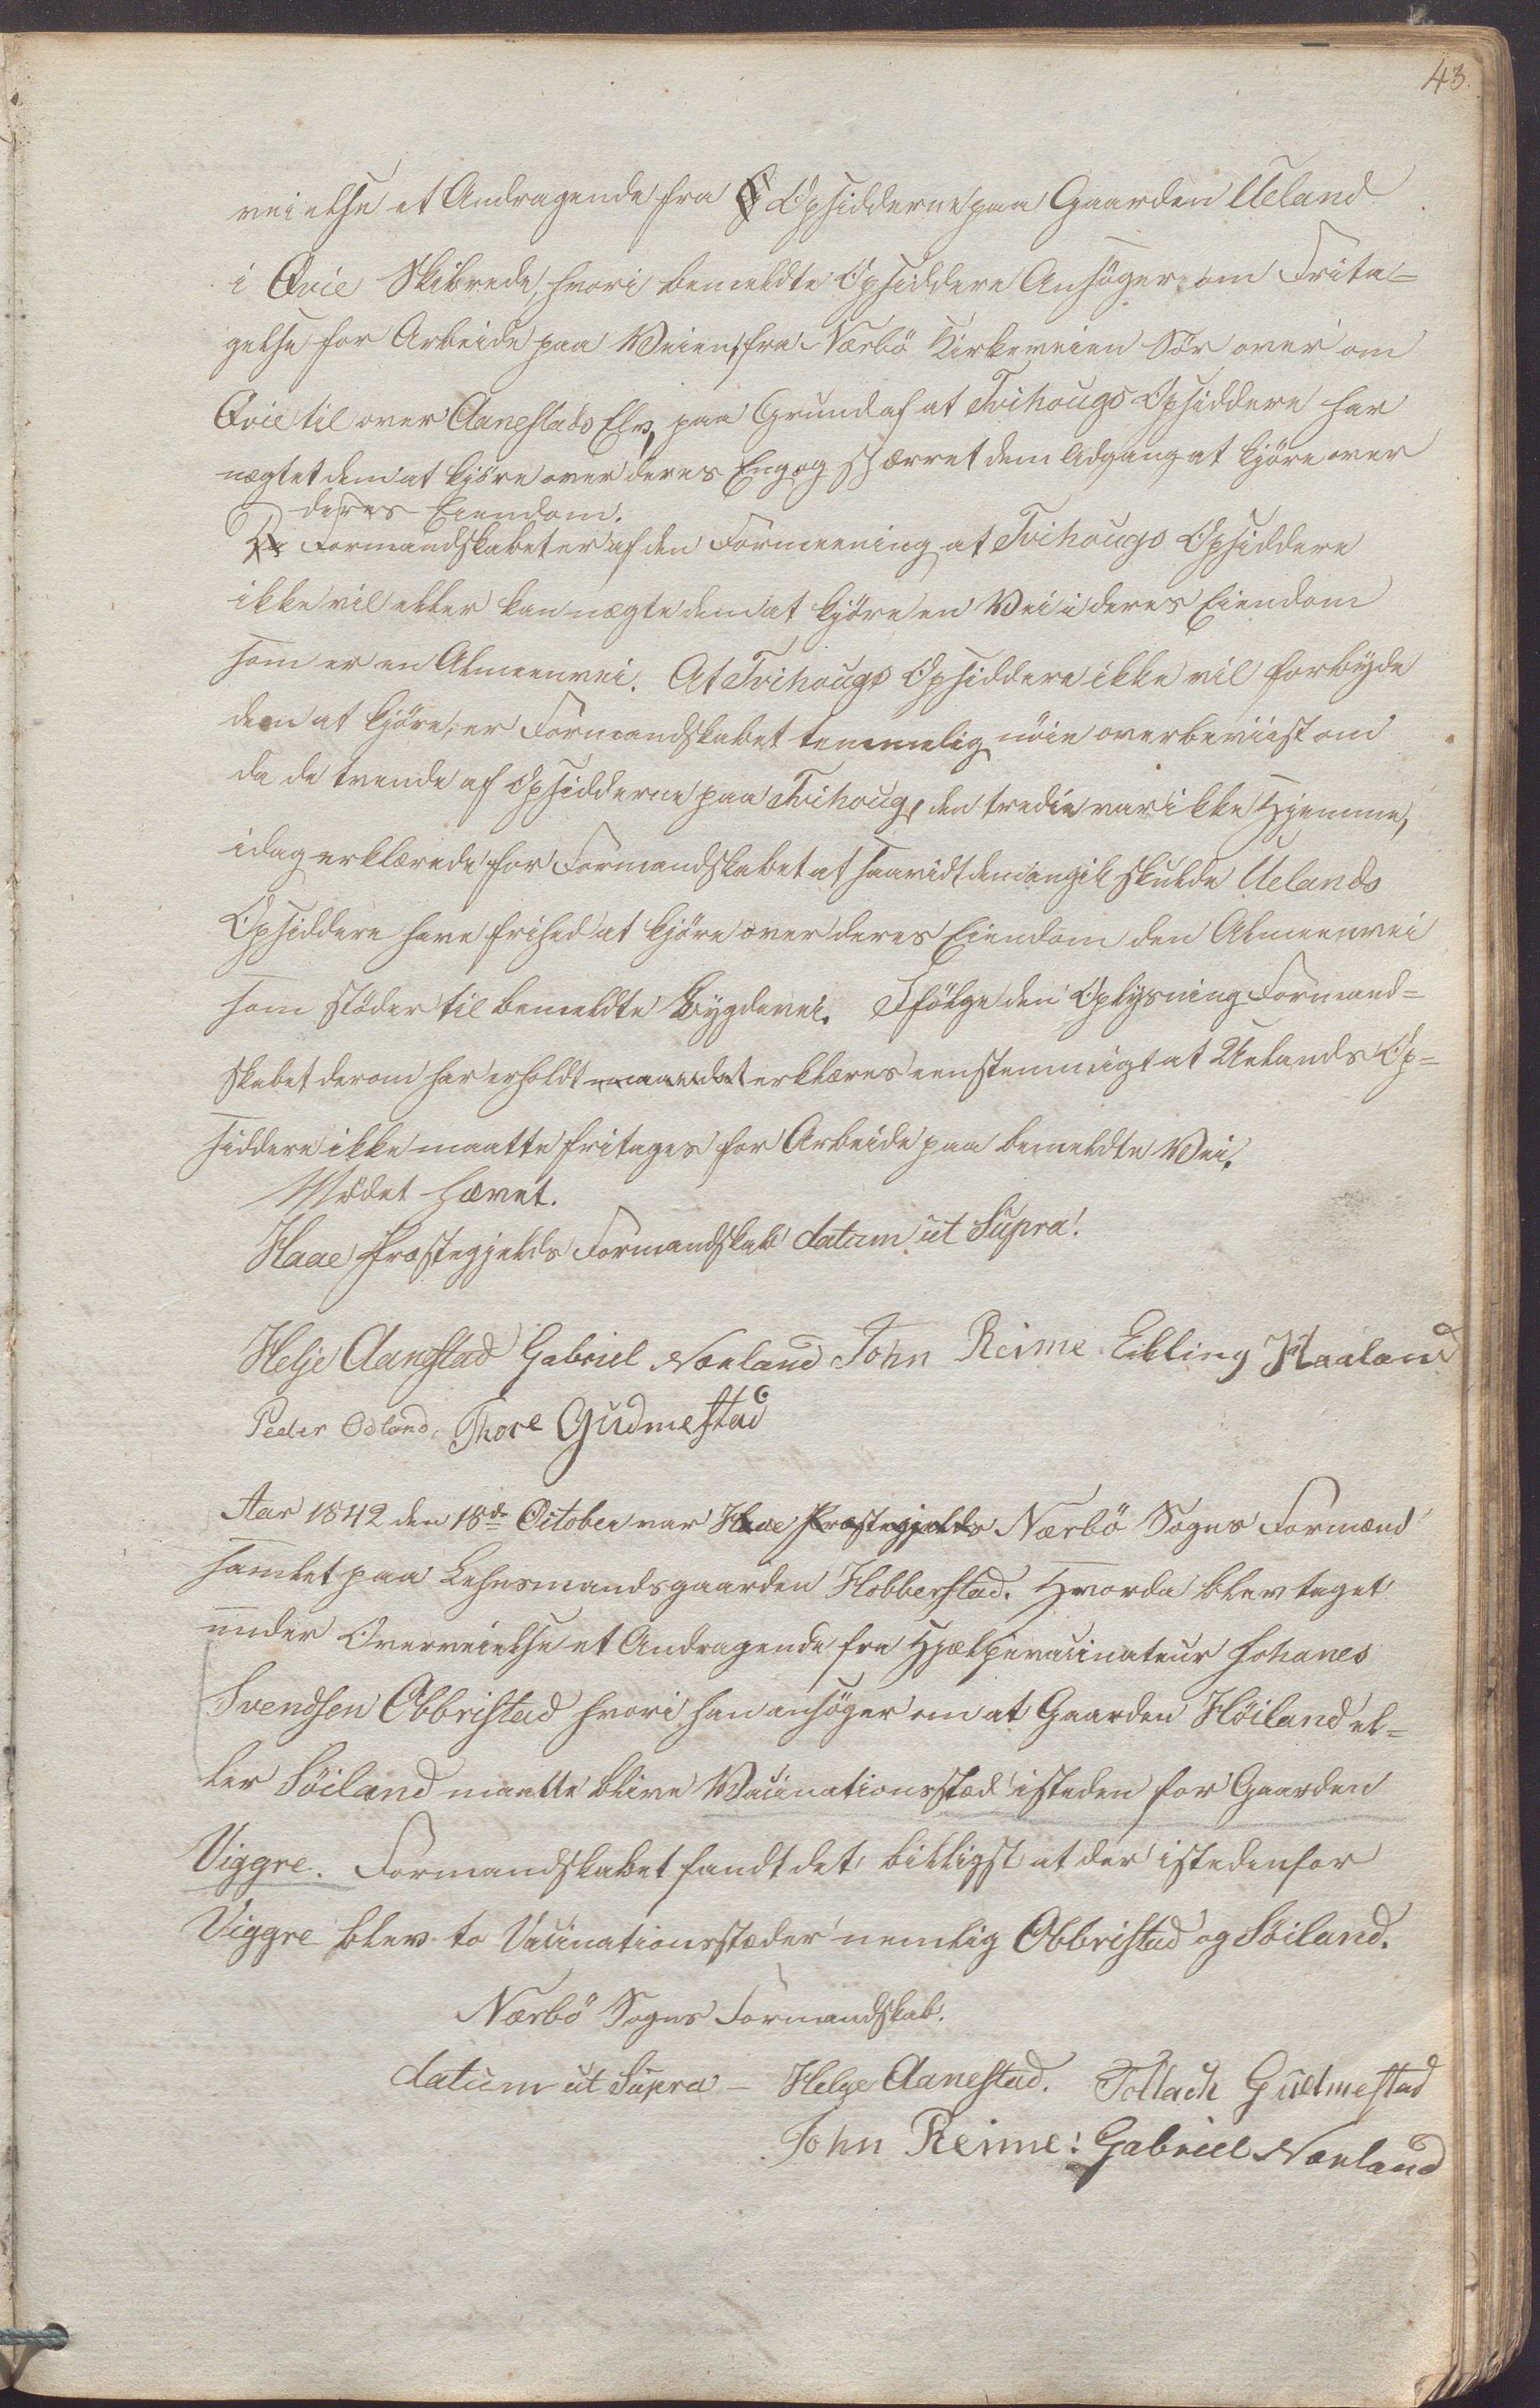 43.
veielse et Andragende fra Opsidderne paa Gaarden Ueland
i Qvie Skibrede, hvori bemeldte Opsiddere Ansøger om Frita-
gelse for Arbeide paa Veien fra Nærbö Kirkeveien Sör over om
Qvie til over Aanestads Elv, paa Grund af at Tvihougs Opsiddere har
nægtet dem at kjöre over deres Eng og spærret dem Adgang at kjöre over
deres Eiendom.
Formandskabet er af den Formeening at Tvihougs Opsiddere
ikke vil eller kan nægte dem at kjöre en Vei i deres Eiendom
som er en Almeenvei. At Tvihougs Opsiddere ikke vil forbyde
dem at kjöre, er Formandskabet temmelig nöie overbeviist om
da de tvende af Opsidderne paa Tvihoug, den tredie var ikke Hjemme,
idag erklærede for Formandskabet at saavidt dem angik skulde Uelands
Opsiddere have frihed at kjöre over deres Eiendom den Almeenvei
som stöder til bemeldte Bygdevei. Ifölge den Oplysning Formand-
skabet derom har erholdt erklæres eenstemmigt at Uelands Op-
siddere ikke maatte fritages for Arbeide paa bemeldte Vei.
Mödet hævet.
Haae Præstegjelds Formandskab datum ut Supra.
Helje Aanestad Gabriel Nærland John Reime Elling Haaland
Peder Ødland, Thore Gudmestad
Aar 1842 den 18de October var Haae Præstegjelds Nærbö Sogns Formænd
samlet paa Lehnsmandsgaarden Hobberstad. Hvorda blev taget
under Overveielse et Andragende fra Hjælpevacinateur Johanes
Svendsen Obbristad hvori han ansöger om at Gaarden Höiland el-
ler Söiland maatte blive Vacinationsstæd isteden for Gaarden
Viggre. Formandskabet fandt det billigst at der istedenfor
Viggre blev to Vacinationsstæder nemlig Obbristad og Söiland.
Nærbö Sogns Formandskab.
datum ut Supra – Helge Aanestad. Tollack Gudmestad
John Reime: Gabriel Nærland